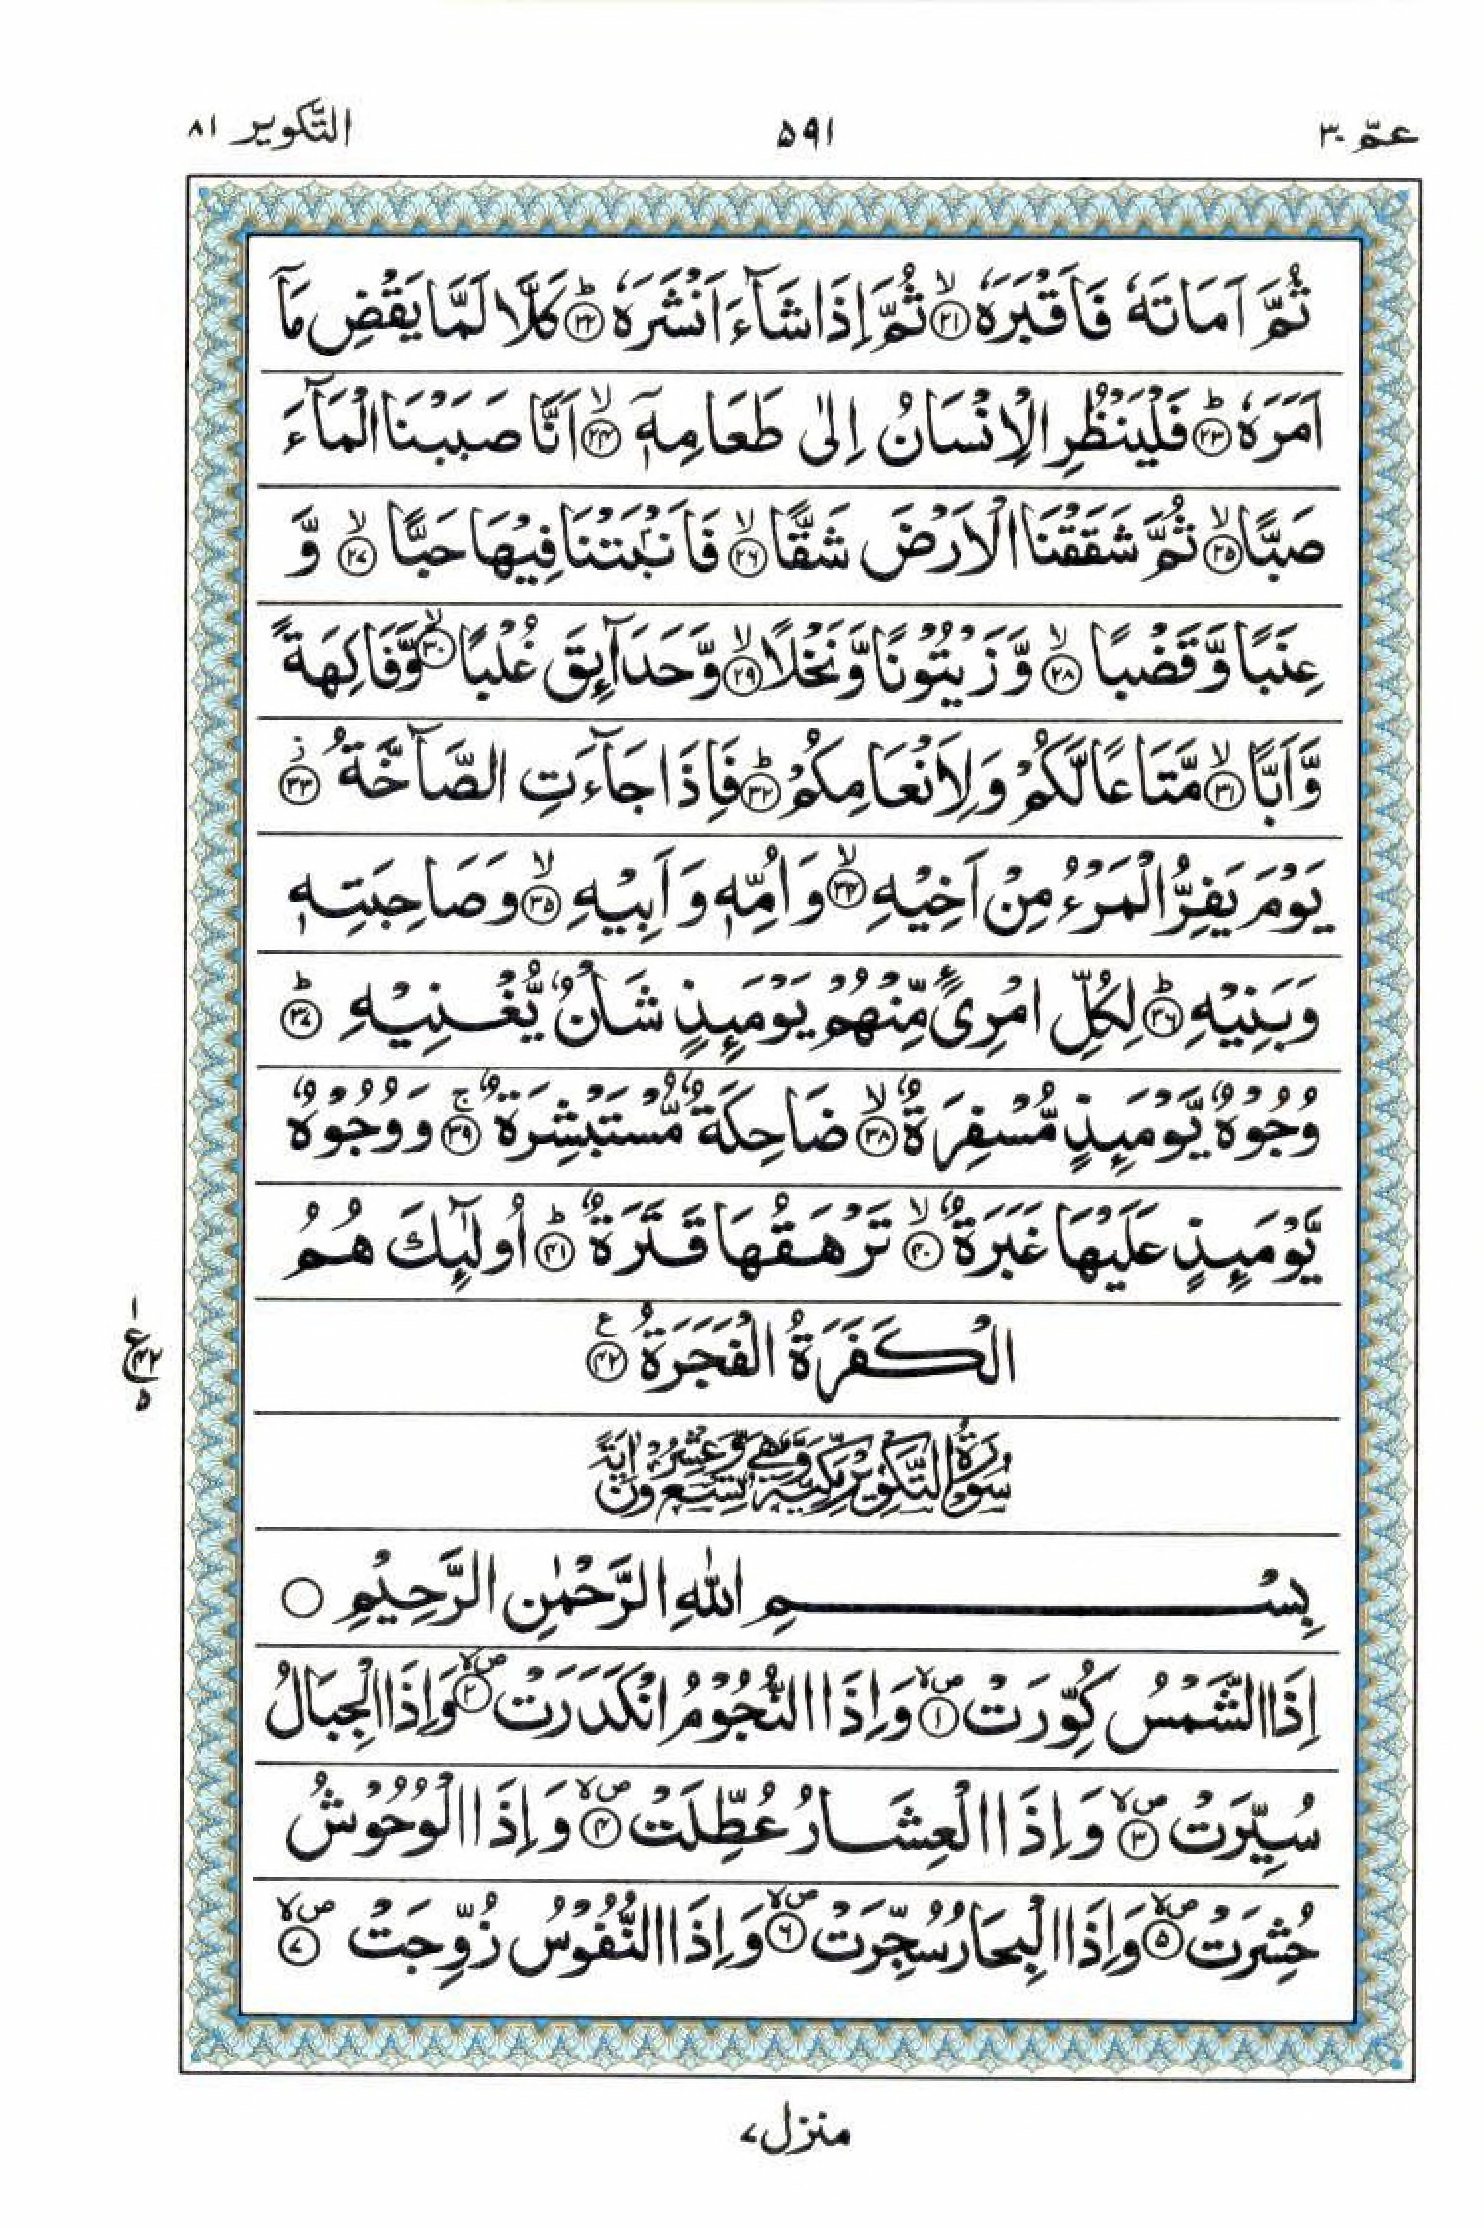 عمّ ۳۰
۵۹۱
التّكوير ۸۱
ثُمَّ اَمَاتَهٗ فَاَقْبَرَهٗ ۙ﴿۲۱﴾ ثُمَّ اِذَا شَآءَ اَنْشَرَهٗ ؕ﴿۲۲﴾ كَلَّا لَمَّا يَقْضِ مَاۤ
اَمَرَهٗ ؕ﴿۲۳﴾ فَلْيَنْظُرِ الْاِنْسَانُ اِلٰى طَعَامِهٖۤ ۙ﴿۲۴﴾ اَنَّا صَبَبْنَا الْمَآءَ
صَبًّا ۙ﴿۲۵﴾ ثُمَّ شَقَقْنَا الْاَرْضَ شَقًّا ۙ﴿۲۶﴾ فَاَنْۢبَتْنَا فِيْهَا حَبًّا ۙ﴿۲۷﴾ وَّ
عِنَبًا وَّقَضْبًا ۙ﴿۲۸﴾ وَّزَيْتُوْنًا وَّنَخْلًا ۙ﴿۲۹﴾ وَّحَدَآئِقَ غُلْبًا ۙ﴿۳۰﴾ وَّفَاكِهَةً
وَّاَبًّا ۙ﴿۳۱﴾ مَّتَاعًا لَّكُمْ وَلِاَنْعَامِكُمْ ؕ﴿۳۲﴾ فَاِذَا جَآءَتِ الصَّآخَّةُ ۫﴿۳۳﴾
يَوْمَ يَفِرُّ الْمَرْءُ مِنْ اَخِيْهِ ۙ﴿۳۴﴾ وَاُمِّهٖ وَاَبِيْهِ ۙ﴿۳۵﴾ وَصَاحِبَتِهٖ
وَبَنِيْهِ ؕ﴿۳۶﴾ لِكُلِّ امْرِئٍ مِّنْهُمْ يَوْمَئِذٍ شَاْنٌ يُّغْنِيْهِ ؕ﴿۳۷﴾
وُجُوْهٌ يَّوْمَئِذٍ مُّسْفِرَةٌ ۙ﴿۳۸﴾ ضَاحِكَةٌ مُّسْتَبْشِرَةٌ ۚ﴿۳۹﴾ وَوُجُوْهٌ
يَّوْمَئِذٍ عَلَيْهَا غَبَرَةٌ ۙ﴿۴۰﴾ تَرْهَقُهَا قَتَرَةٌ ؕ﴿۴۱﴾ اُولٰٓئِكَ هُمُ
الْكَفَرَةُ الْفَجَرَةُ ع﴿۴۲﴾
۱
ع ۴۲
۵
سُوْرَةُ التَّكْوِيْرِ مَكِّيَّةٌ وَّهِيَ تِسْعٌ وَّعِشْرُوْنَ اٰيَةً
بِسْمِ اللّٰهِ الرَّحْمٰنِ الرَّحِيْمِ ○
اِذَا الشَّمْسُ كُوِّرَتْ ۪ۙ﴿۱﴾ وَاِذَا النُّجُوْمُ انْكَدَرَتْ ۪ۙ﴿۲﴾ وَاِذَا الْجِبَالُ
سُيِّرَتْ ۪ۙ﴿۳﴾ وَاِذَا الْعِشَارُ عُطِّلَتْ ۪ۙ﴿۴﴾ وَاِذَا الْوُحُوْشُ
حُشِرَتْ ۪ۙ﴿۵﴾ وَاِذَا الْبِحَارُ سُجِّرَتْ ۪ۙ﴿۶﴾ وَاِذَا النُّفُوْسُ زُوِّجَتْ ۪ۙ﴿۷﴾
منزل ۷